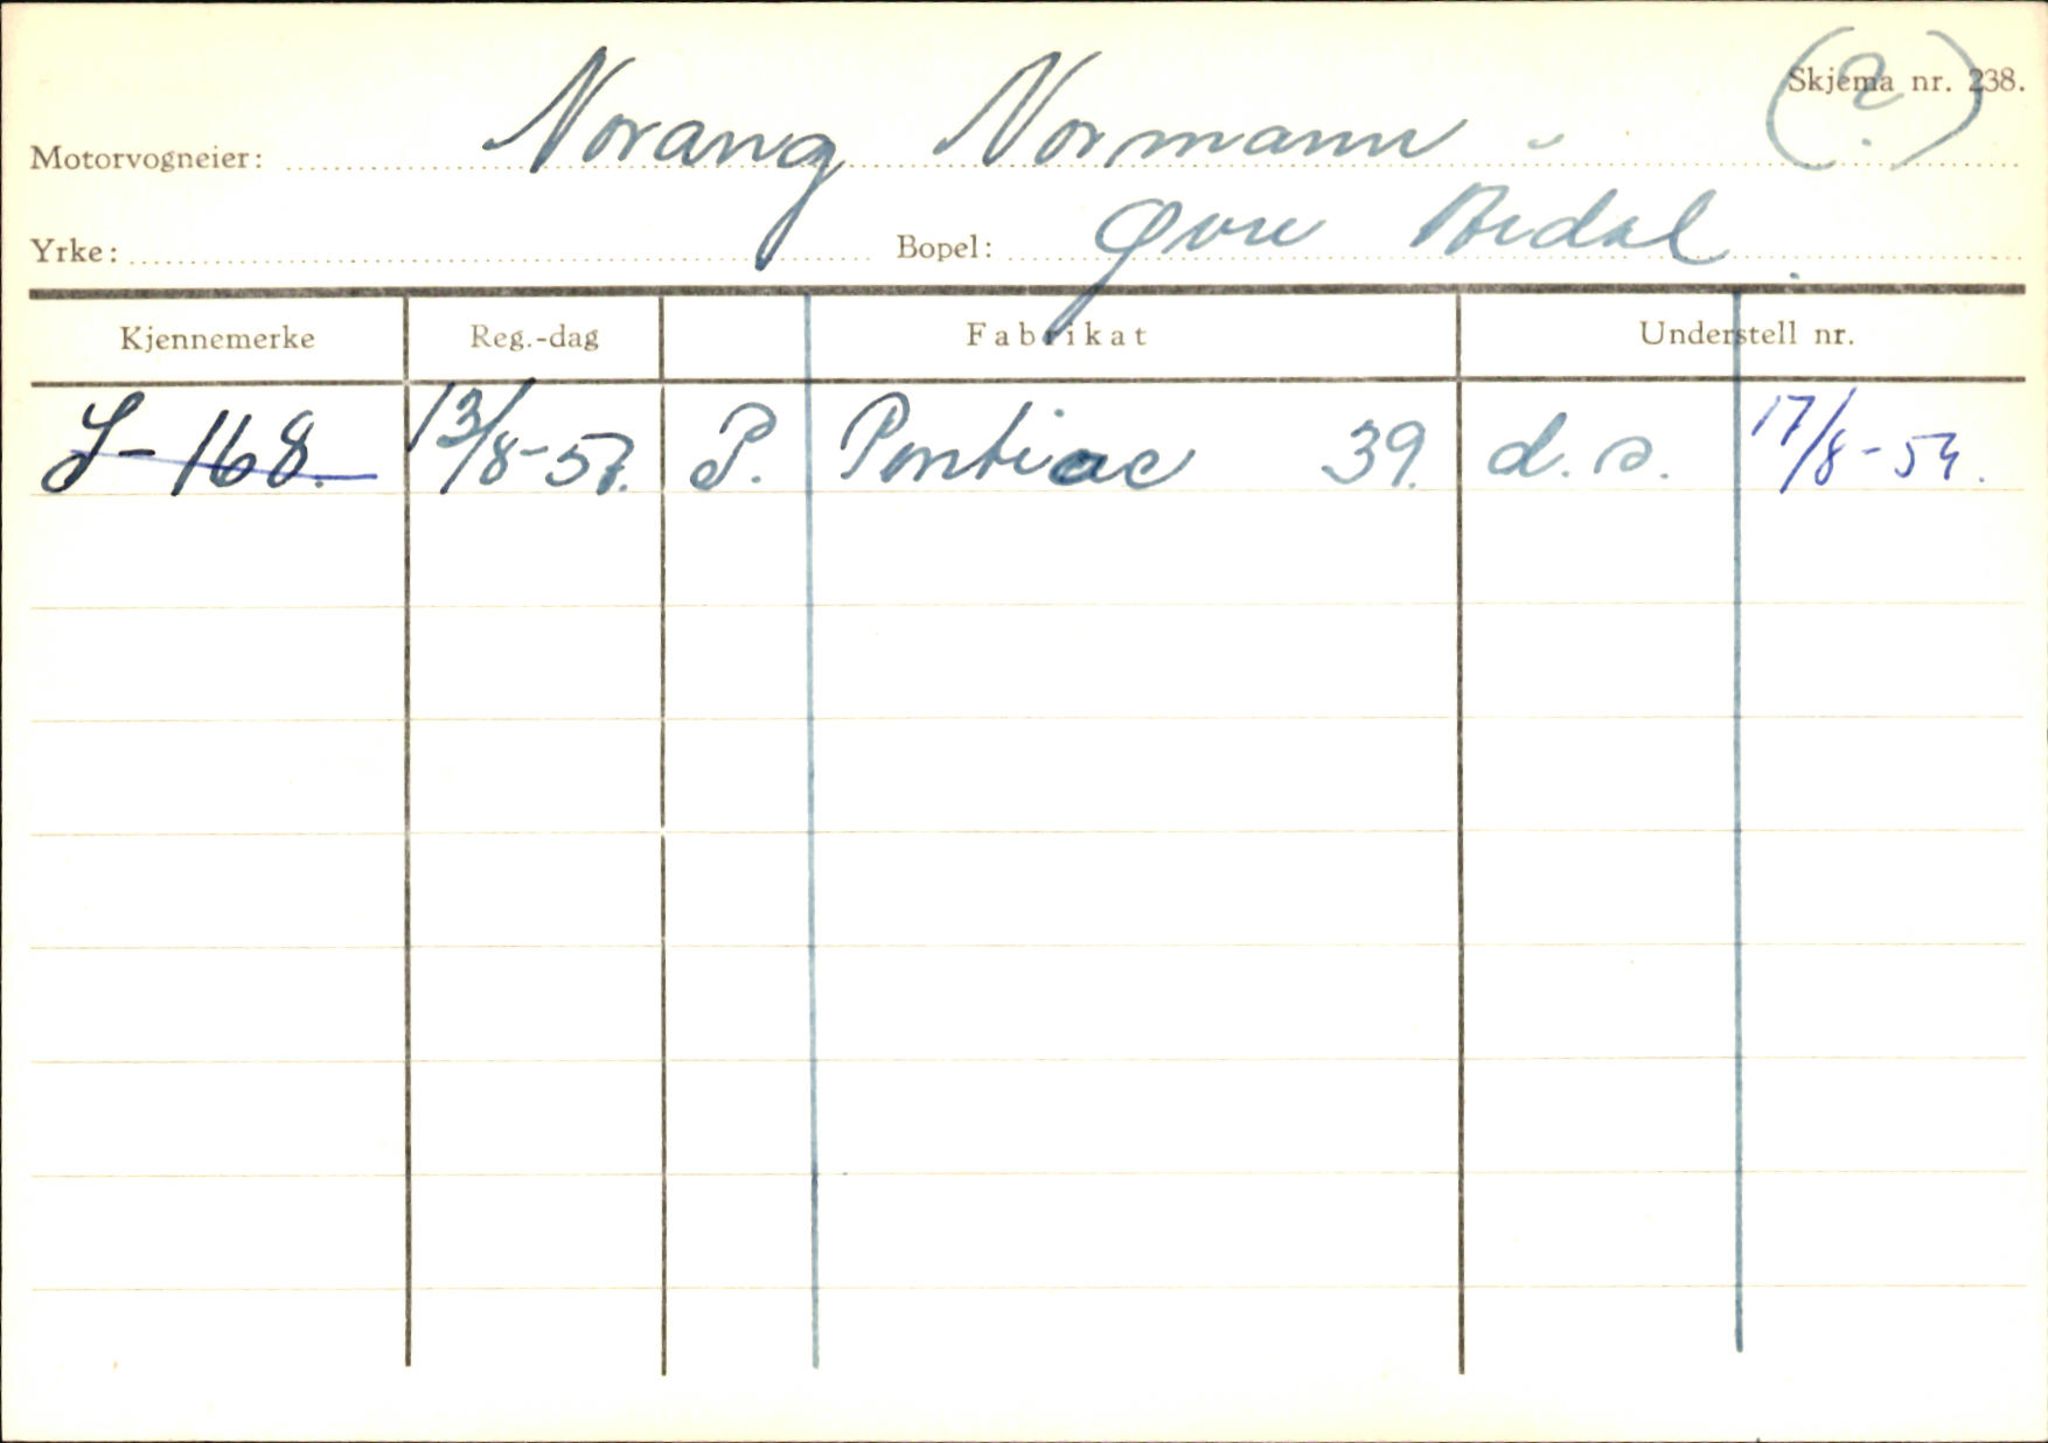 Skjema nr. 238.
(?)
Motorvogneier: Norang Normann
Yrke: Bopel: Øvre Årdal
Kjennemerke Reg.-dag Fabrikat Understell nr.
S-168. 13/8-57. P. Pontiac 39. d.s. 17/8-54.